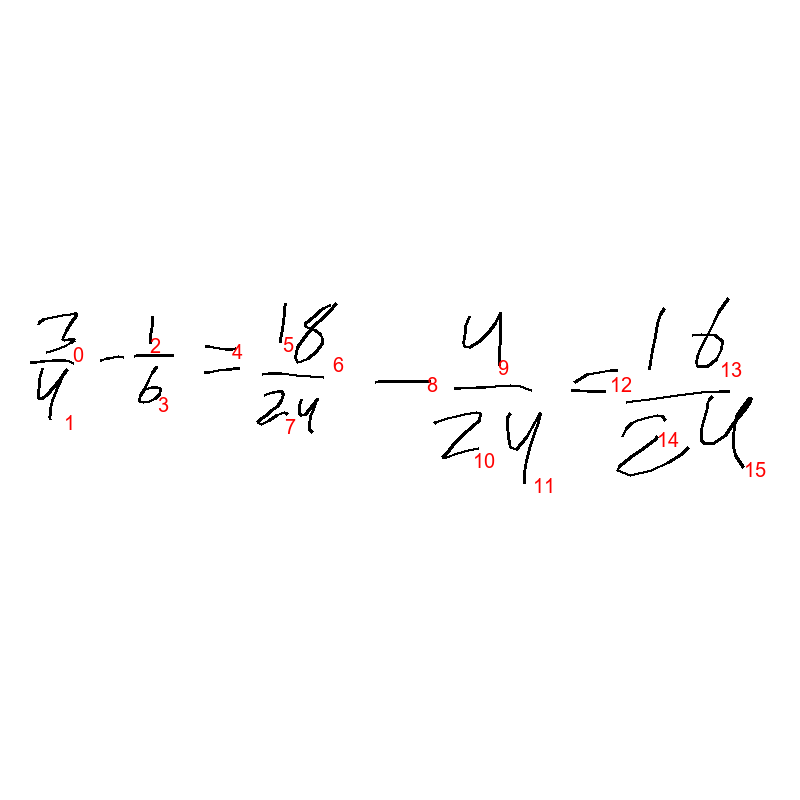 3/4 - 1/6 = 18/24 - 4/24 = 16/24
0 1 2 3 4 5 6 7 8 9 10 11 12 13 14 15